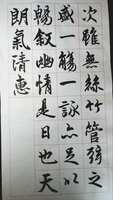 次雖無絲竹管弦之
盛一觴一詠亦足以
暢叙幽情是日也天
朗氣清惠